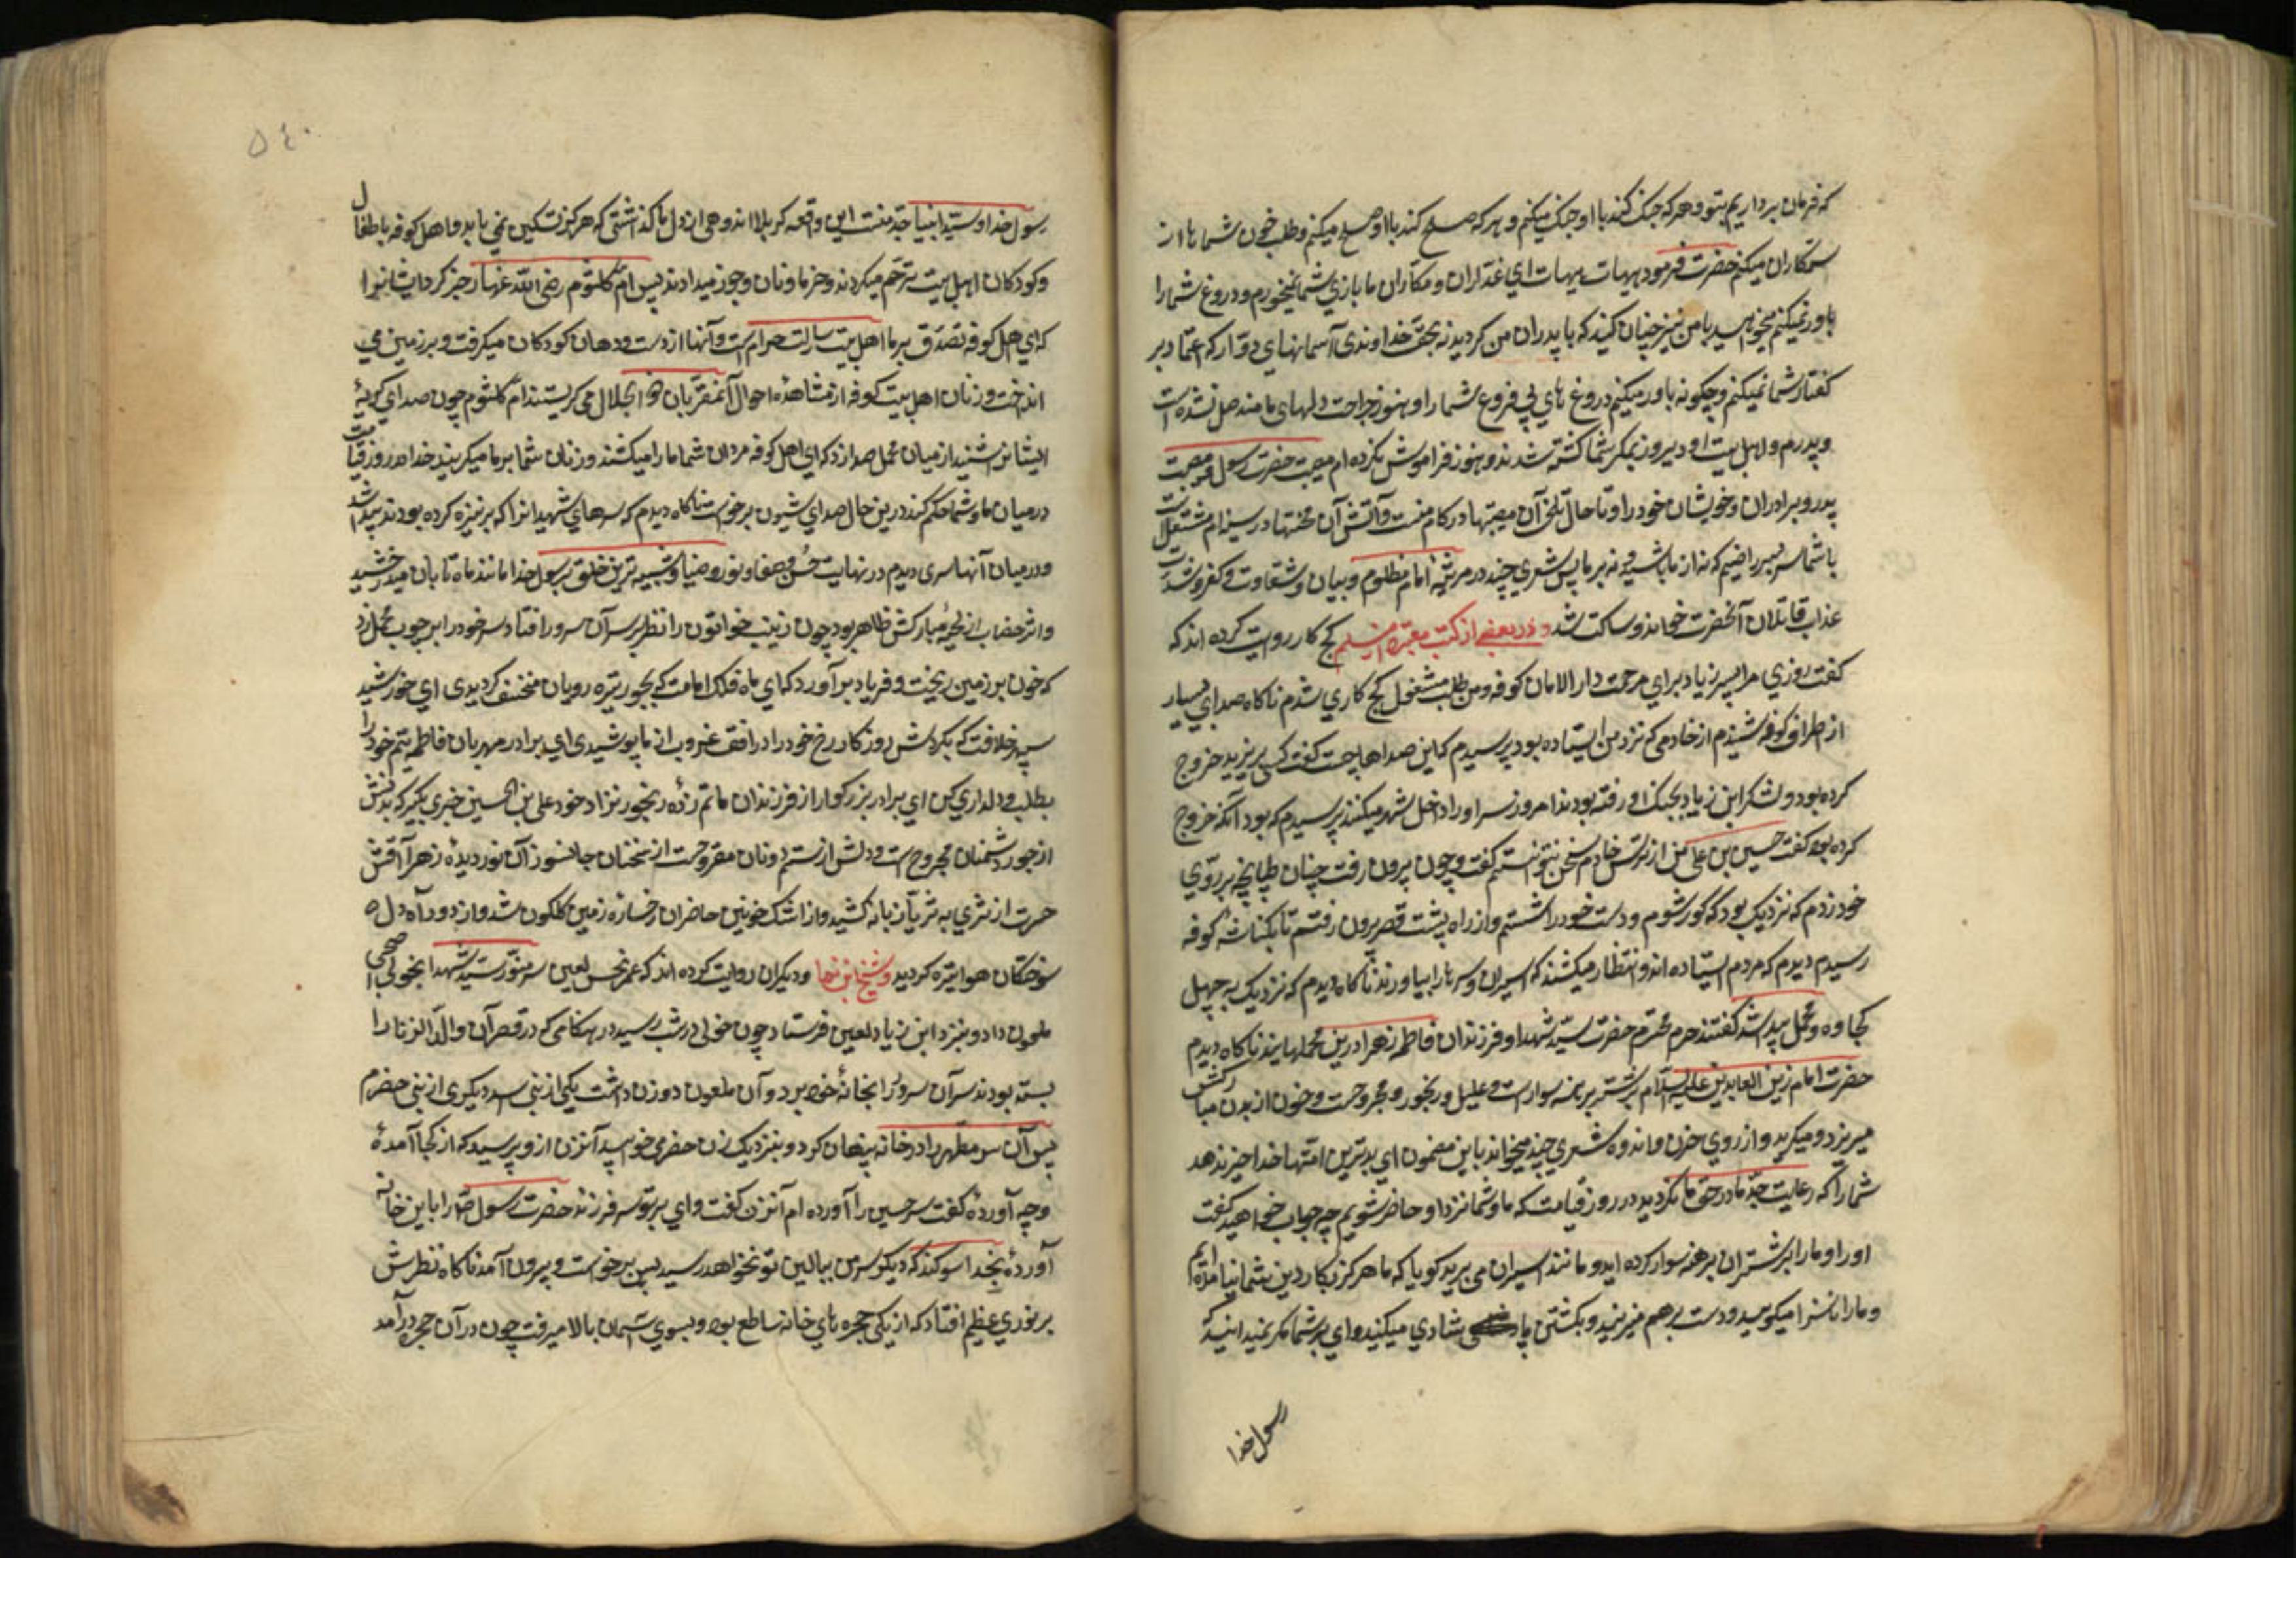 که فرمان برداریم بتو و هر که جنک کند با او جنک میکنم و هر که صلح کند با او صلح میکنم و طلب خون شما ها از
ستمکاران میکنم حضرت فرمود هیهات هیهات ای غداران و مکاران ما بازی شما نمیخورم و دروغ شما را
باور نمیکنم میخواهید با من نیز چنان کنید که با پدران من کردید نه بحق خداوندی آسمانهای دوار که اعتماد بر
کفتار شما نمیکنم و چکونه باور میکنم دروغ های بی فروغ شما را و هنوز جراحت دلهای ما مندمل نشده است
و پدرم و اهل بیت او دیروز بمکر شما کشته شدند و هنوز فراموش نکرده ام مصیبت حضرت رسول و مصیبت
پدر و برادران و خویشان خود را و تا حال تلخی آن مصیبتها در کام منست و آتش آن محنتها در سینه ام مشتعل است
با شما سر بسر راضیم که نه از ما باشید و نه بر ما پس شعری چند در مرثیه امام مظلوم و بیان شقاوت و کفر و شدت
عذاب قاتلان آنحضرت خواند و ساکت شد و در بعضی از کتب معتبره از مسلم کج کار روایت کرده اند که
کفت روزی مرا پسر زیاد برای مرمت دار الاماره کوفه و من طلب مشغول کج کاری شدم ناکاه صدای بسیار
از اطراف کوفه شنیدم از خادمی که نزد من ایستاده بود پرسیدم که این صداها چیست کفت کسی بر یزید خروج
کرده بود و لشکر ابن زیاد بجنک او رفته بودند امروز سر او را داخل شهر میکنند پرسیدم که بود آنکه خروج
کرده بود کفت حسین بن علی من از ترس خادم سخن نتوانستم کفت و چون بیرون رفت چنان طپانچه بر روی
خود زدم که نزدیک بود که کور شوم و دست خود را شستم و از راه پشت قصر بیرون رفتم تا بکناسه کوفه
رسیدم دیدم که مردم ایستاده اند و انتظار میکشند که اسیران و سر ها را بیاورند ناکاه دیدم که نزدیک به چهل
کجاوه و محمل پیدا شد کفتند حرم محترم حضرت سید شهدا و فرزندان فاطمه زهرا در این محملهایند ناکاه دیدم
حضرت امام زین العابدین علیه السلام بر شتر برهنه سوار است و علیل و رنجور و مجروحست و خون از بدن مبارکش
میریزد و میکرید و از روی حزن و اندوه شعری چند میخواند باین مضمون ای بدترین امتها خدا خیر ندهد
شما را که رعایت جد ما در حق ما نکردید در روز قیامت که ما و شما نزد او حاضر شویم چه جواب خواهید کفت
او را و ما را بر شتران برهنه سوار کرده اید و مانند اسیران می برید کویا که ما هرکز بکار دین شما نیامده ایم
و ما را ناسزا میکویید و دست بر هم میزنید و بکشتن ما شادی میکنید وای بر شما مکر نمیدانید که
رسول خدا
۵۴۰
رسول خدا و سید انبیا جد منست این واقعه کربلا اندوهی از دل ما کذاشتی که هرکز تسکین نمی یابد و اهل کوفه باطفال
و کودکان اهل بیت ترحم میکردند و خرما و نان و جوز میدادند پس ام کلثوم رضی الله عنها زجر کرد ایشانرا
که ای اهل کوفه تصدق بر ما اهل بیت رسالت حرام است و آنها را از دست و دهان کودکان میکرفت و بر زمین می
انداخت و زنان اهل بیت کوفه از مشاهده احوال آن مقربان ذو الجلال می کریستند ام کلثوم چون صدای کریه
ایشان شنید از میان محمل صدا زد که ای اهل کوفه مردان شما ما را میکشند و زنان شما بر ما میکریند خدا در روز قیامت
در میان ما و شما حکم کند در این حال صدای شیون برخواست ناکاه دیدم که سرهای شهیدانرا که بر نیزه کرده بودند پیدا شد
و در میان آنها سری دیدم در نهایت حسن و صفا و نور و ضیا و شبیه ترین خلق برسول خدا مانند ماه تابان میدرخشید
و اثر خضاب از لحیه مبارکش ظاهر بود چون زینب خواتون را نظر بر سر آن سرور افتاد سر خود را بر چوب محمل زد
که خون بر زمین ریخت و فریاد بر آورد که ای ماه فلک امامت که بجور تیره رویان منخسف کردیدی ای خورشید
سپهر خلافت که بکردش روزکار رخ خود را در افق غروب از ما پوشیدی ای برادر مهربان فاطمه یتیم خود را
بطلب و دلداری کن ای برادر بزرکوار از فرزندان ماتم زده رنجور نژاد خود علی بن الحسین خبری بکیر که بدنش
از جور دشمنان مجروح است و دلش از ستم دونان مقروحست از سخنان جانسوز آن نور دیده زهرا آتش
حسرت از ثری به ثریا زبانه کشید و از اشک خونین حاضران رخساره زمین کلکون شد و از دود آه دل
سوختکان هوا تیره کردید و شیخ ابن نما و دیکران روایت کرده اند که عمر نحس لعین سر منور سید شهدا بخولی اصبحی
ملعون داد و بنزد ابن زیاد لعین فرستاد چون خولی در شب رسید در هنکامی که در قصر آن ولد الزنا را
بسته بودند سر آن سرور را بخانه خود برد و آن ملعون دو زن داشت یکی از بنی اسد دیکری از بنی حضرم
پس آن سر مطهر را در خانه پنهان کرد و بنزدیک زن حضرمی خوابید آنزن از و پرسید که از کجا آمدهٔ
و چه آوردهٔ کفت سر حسین را آورده ام آنزن کفت وای بر تو سر فرزند حضرت رسول خدا را باین خانه
آوردهٔ بخدا سوکند که دیکر سر من ببالین تو نخواهد رسید پس برخواست و بیرون آمد ناکاه نظرش
بر نوری عظیم افتاد که از یکی حجره های خانه ساطع بود و بسوی آسمان بالا میرفت چون در آن حجره درآمد